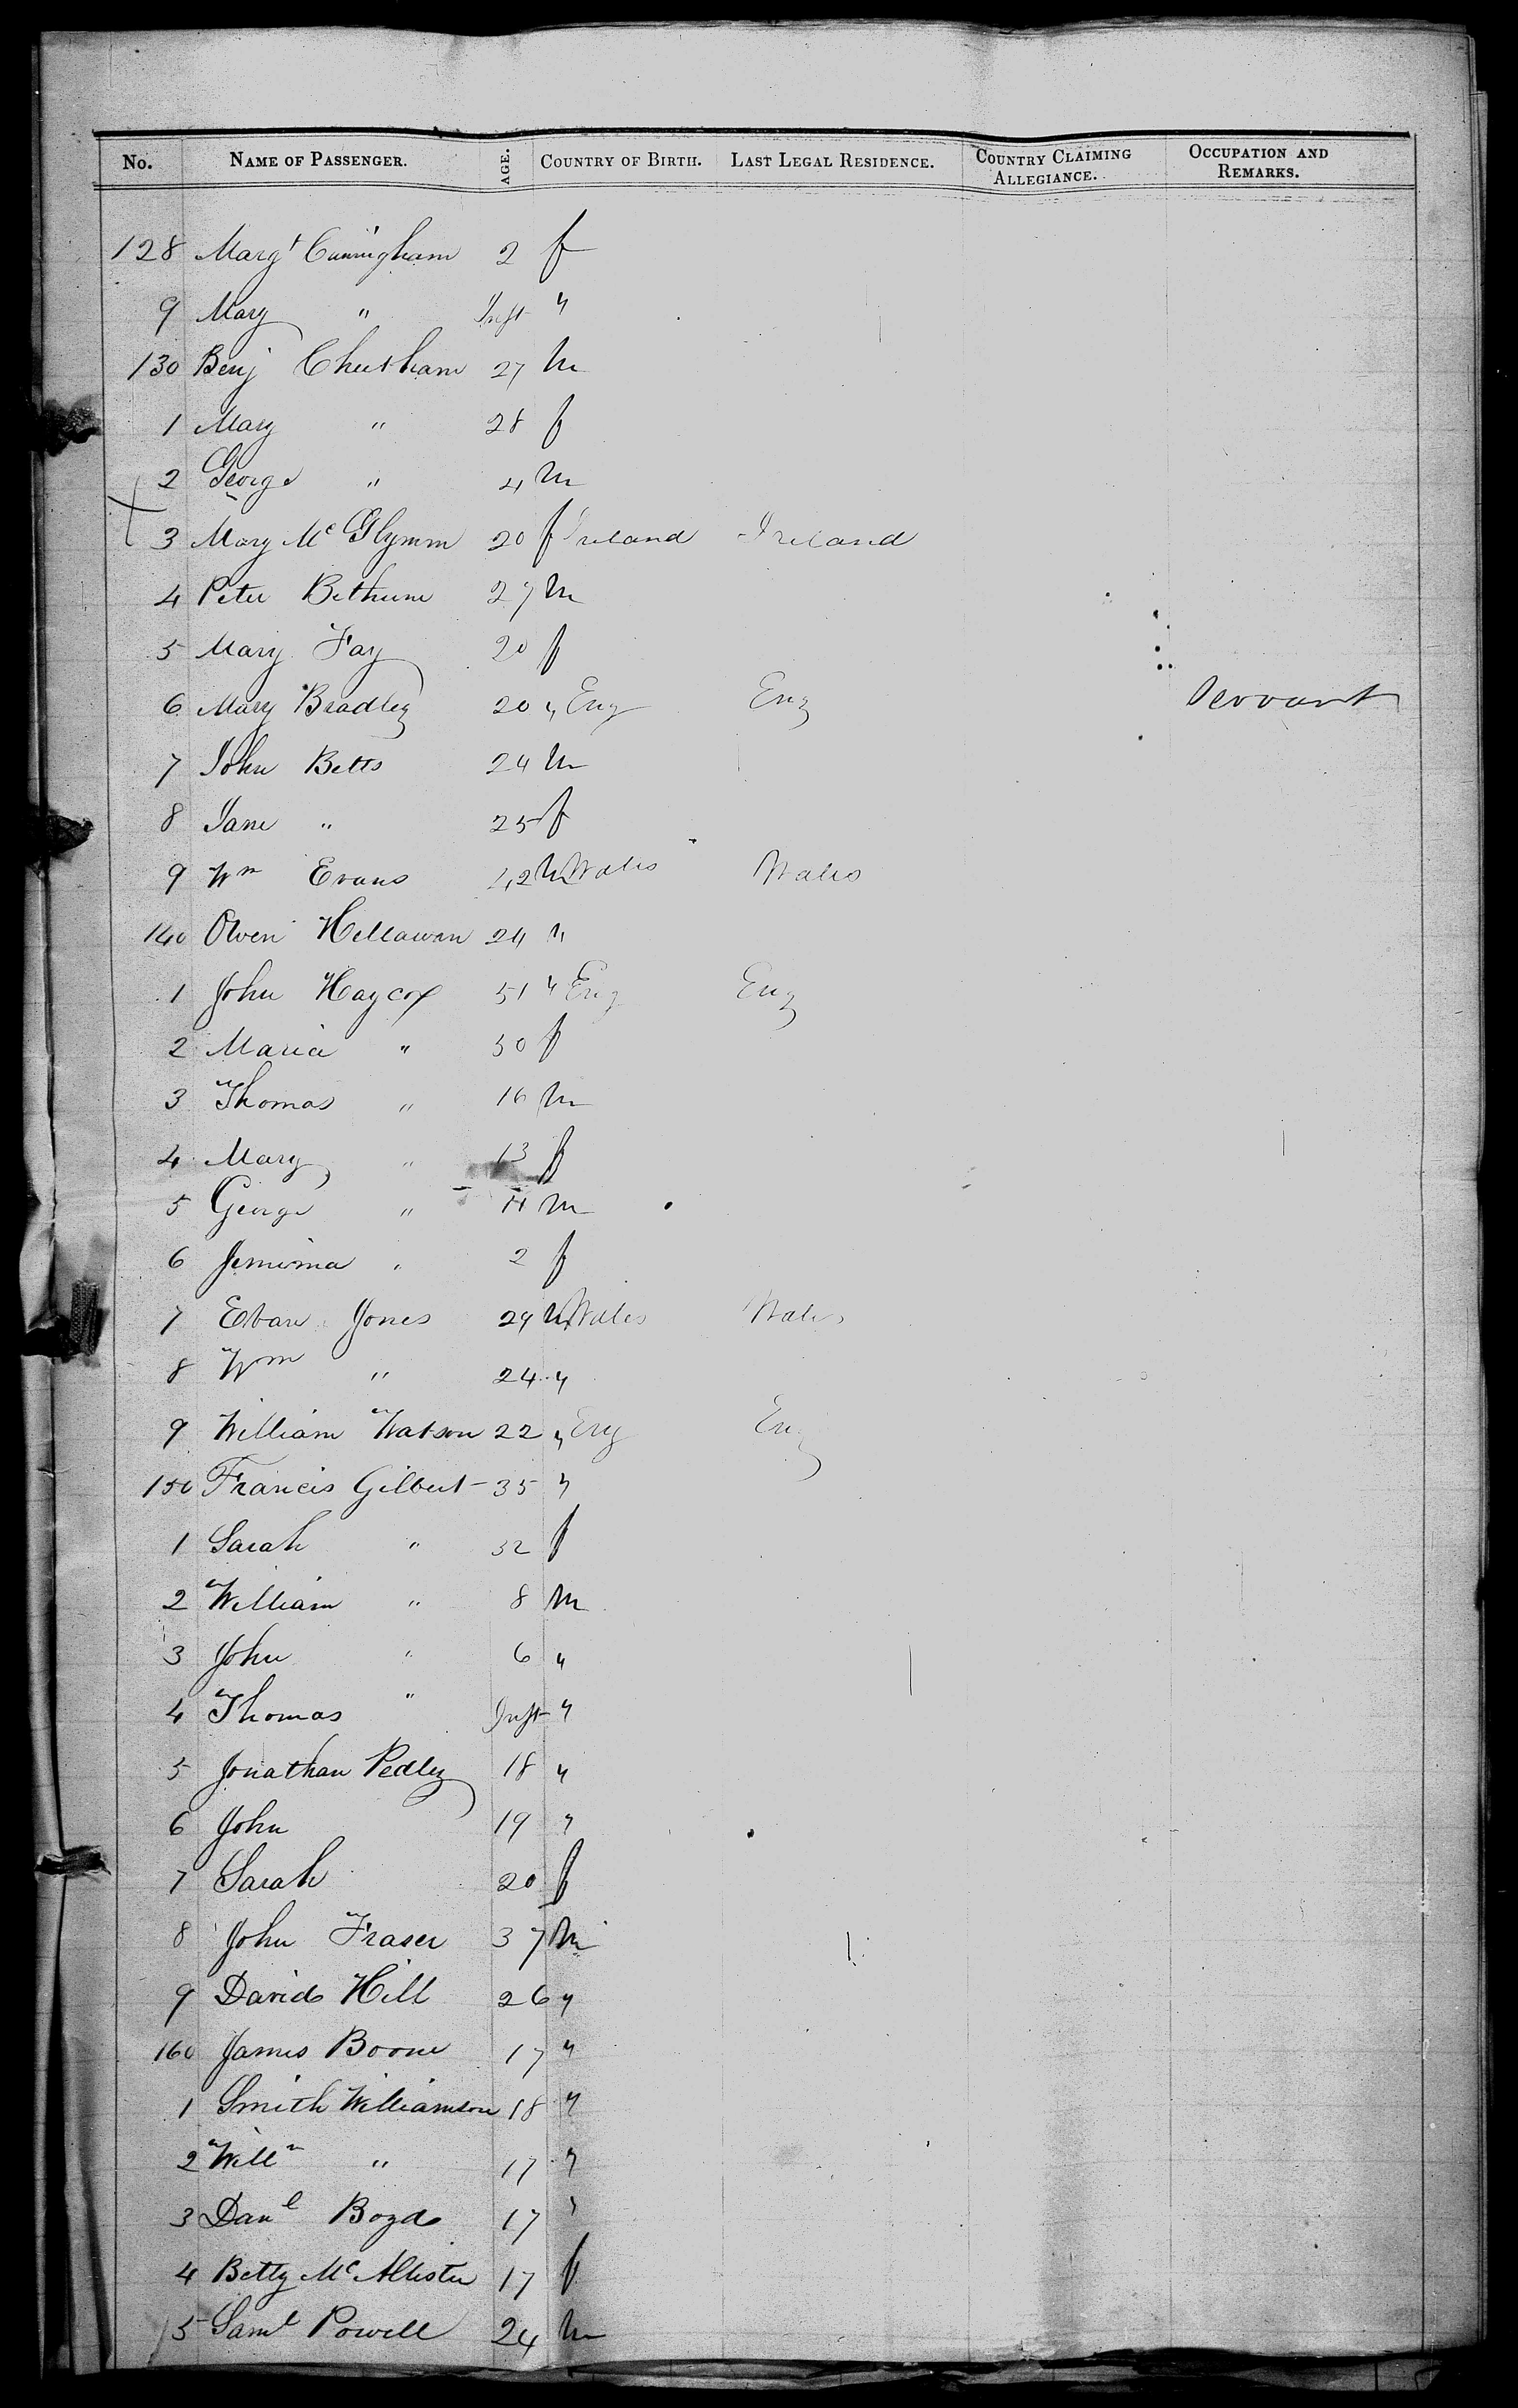 No. NAME OF PASSENGER. AGE. COUNTRY OF BIRTH. LAST LEGAL RESIDENCE. COUNTRY CLAIMING ALLEGIANCE. OCCUPATION AND REMARKS.
128 Margt Cunningham 2 f
9 Mary " Inft "
130 Benj Cheetham 27 m
1 Mary " 28 f
2 George " 4 m
3 Mary Mc Glymm 20 f Ireland Ireland
4 Peter Bethune 27 m
5 Mary Fay 20 f
6 Mary Bradley 20 " Eng Eng Servant
7 John Betts 24 m
8 Jane " 25 f
9 Wm Evans 42 m Wales Wales
140 Owen Hellawan 24 "
1 John Haycox 51 " Eng Eng
2 Maria " 50 f
3 Thomas " 16 m
4 Mary " 13 f
5 George " 11 m
6 Jemima " 2 f
7 Evan Jones 29 m Wales Wales
8 Wm " 24 "
9 William Watson 22 " Eng Eng
150 Francis Gilbert 35 "
1 Sarah " 32 f
2 William " 8 m
3 John " 6 "
4 Thomas " Inft "
5 Jonathan Pedley 18 "
6 John 19 "
7 Sarah 20 f
8 John Fraser 37 m
9 David Hill 26 "
160 James Boone 17 "
1 Smith Williamson 18 "
2 Willm " 17 "
3 Danl Boyd 17 "
4 Betty Mc Allister 17 f
5 Saml Powell 24 m